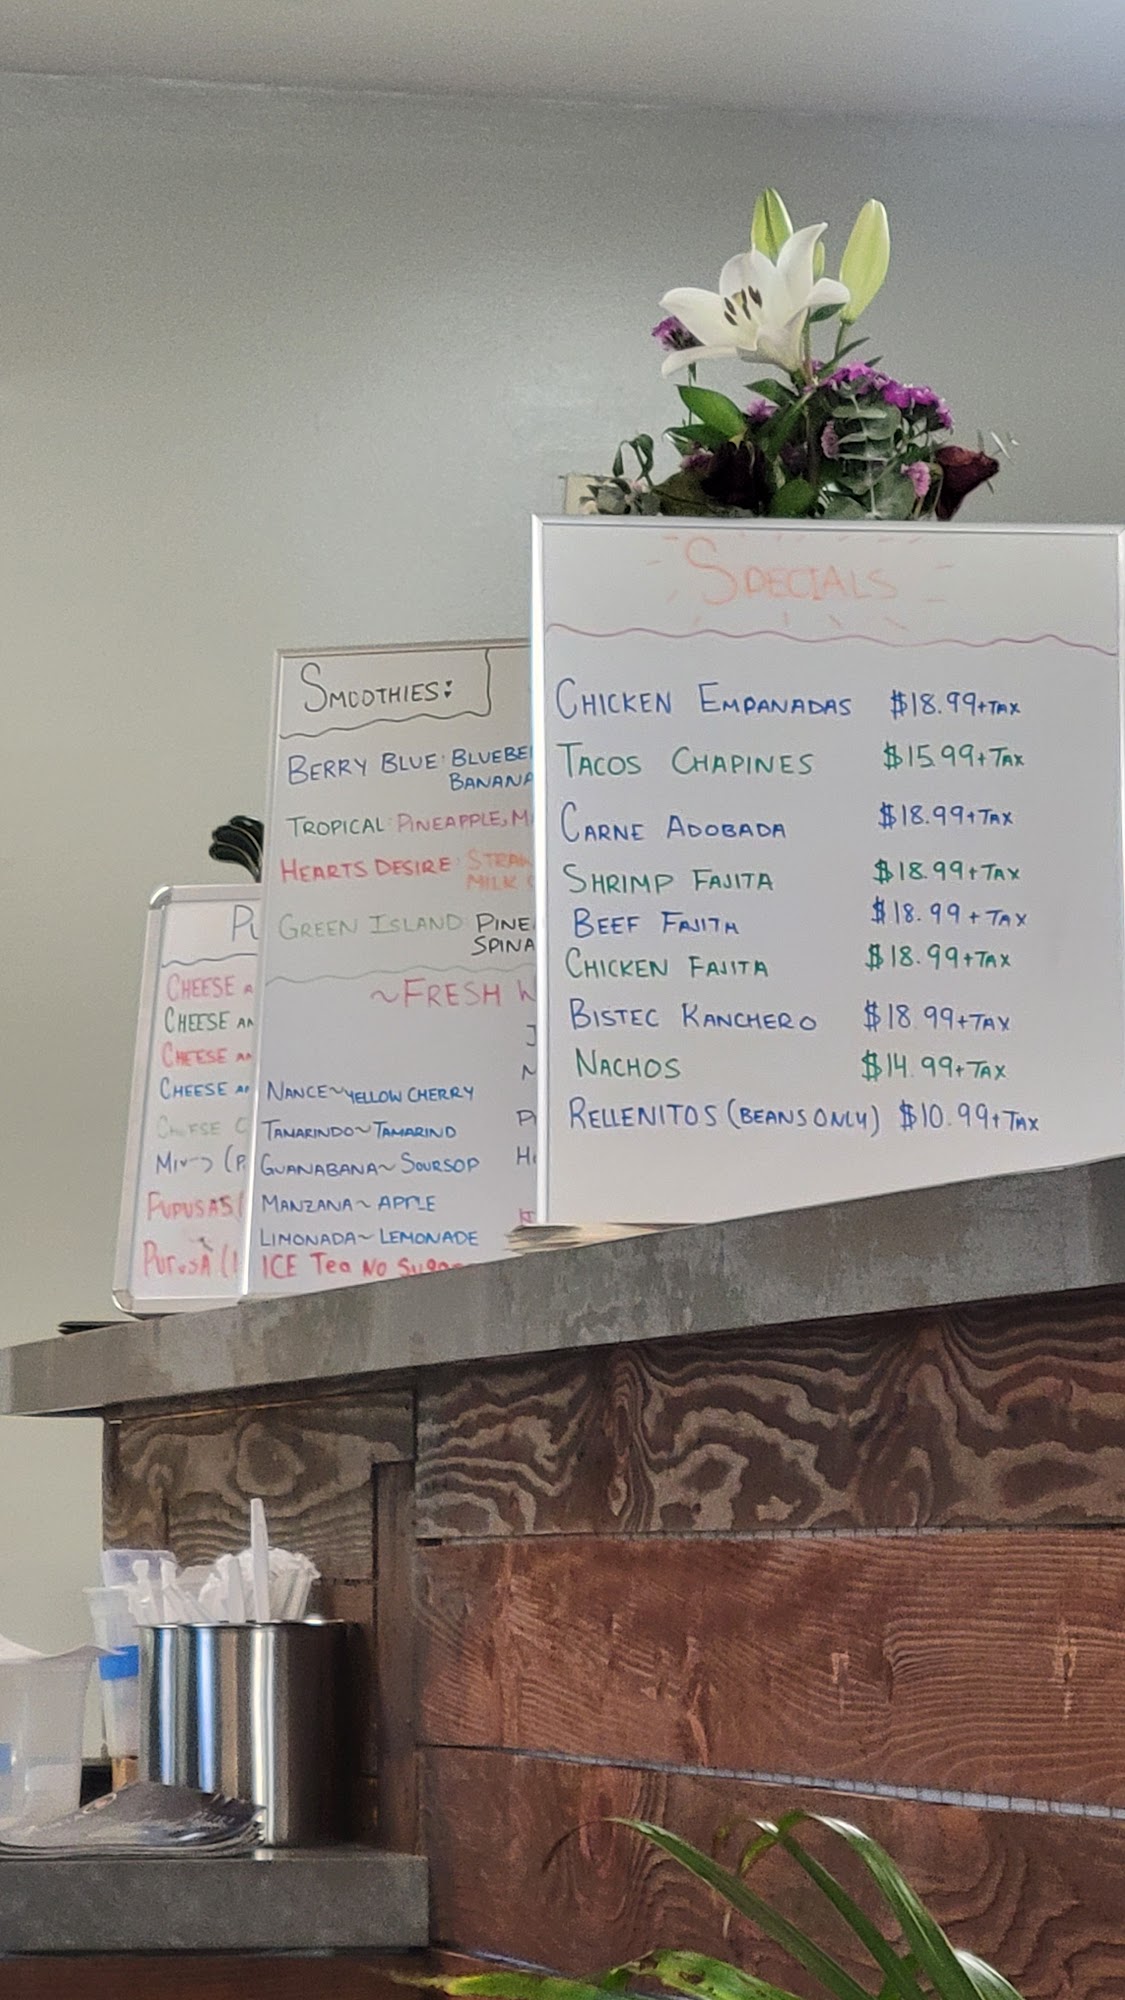 SPECIALS
CHICKEN EMPANADAS $18.99+TAX
TACOS CHAPINES $15.99+TAX
CARNE ADOBADA $18.99+TAX
SHRIMP FAJITA $18.99+TAX
BEEF FAJITA $18.99+TAX
CHICKEN FAJITA $18.99+TAX
BISTEC RANCHERO $18.99+TAX
NACHOS $14.99+TAX
RELLENITOS (BEANS ONLY) $10.99+TAX
SMOOTHIES:
BERRY BLUE: BLUEBE
BANANA
TROPICAL: PINEAPPLE, M
HEARTS DESIRE: STRAW
MILK
GREEN ISLAND: PINE
SPINA
~FRESH
NANCE~YELLOW CHERRY
TAMARINDO~TAMARIND
GUANABANA~SOURSOP
MANZANA~APPLE
LIMONADA~LEMONADE
ICE Tea No Sugar
PU
CHEESE A
CHEESE AN
CHEESE AN
CHEESE AN
CHEESE
PUPUSAS (
PUPUSA (